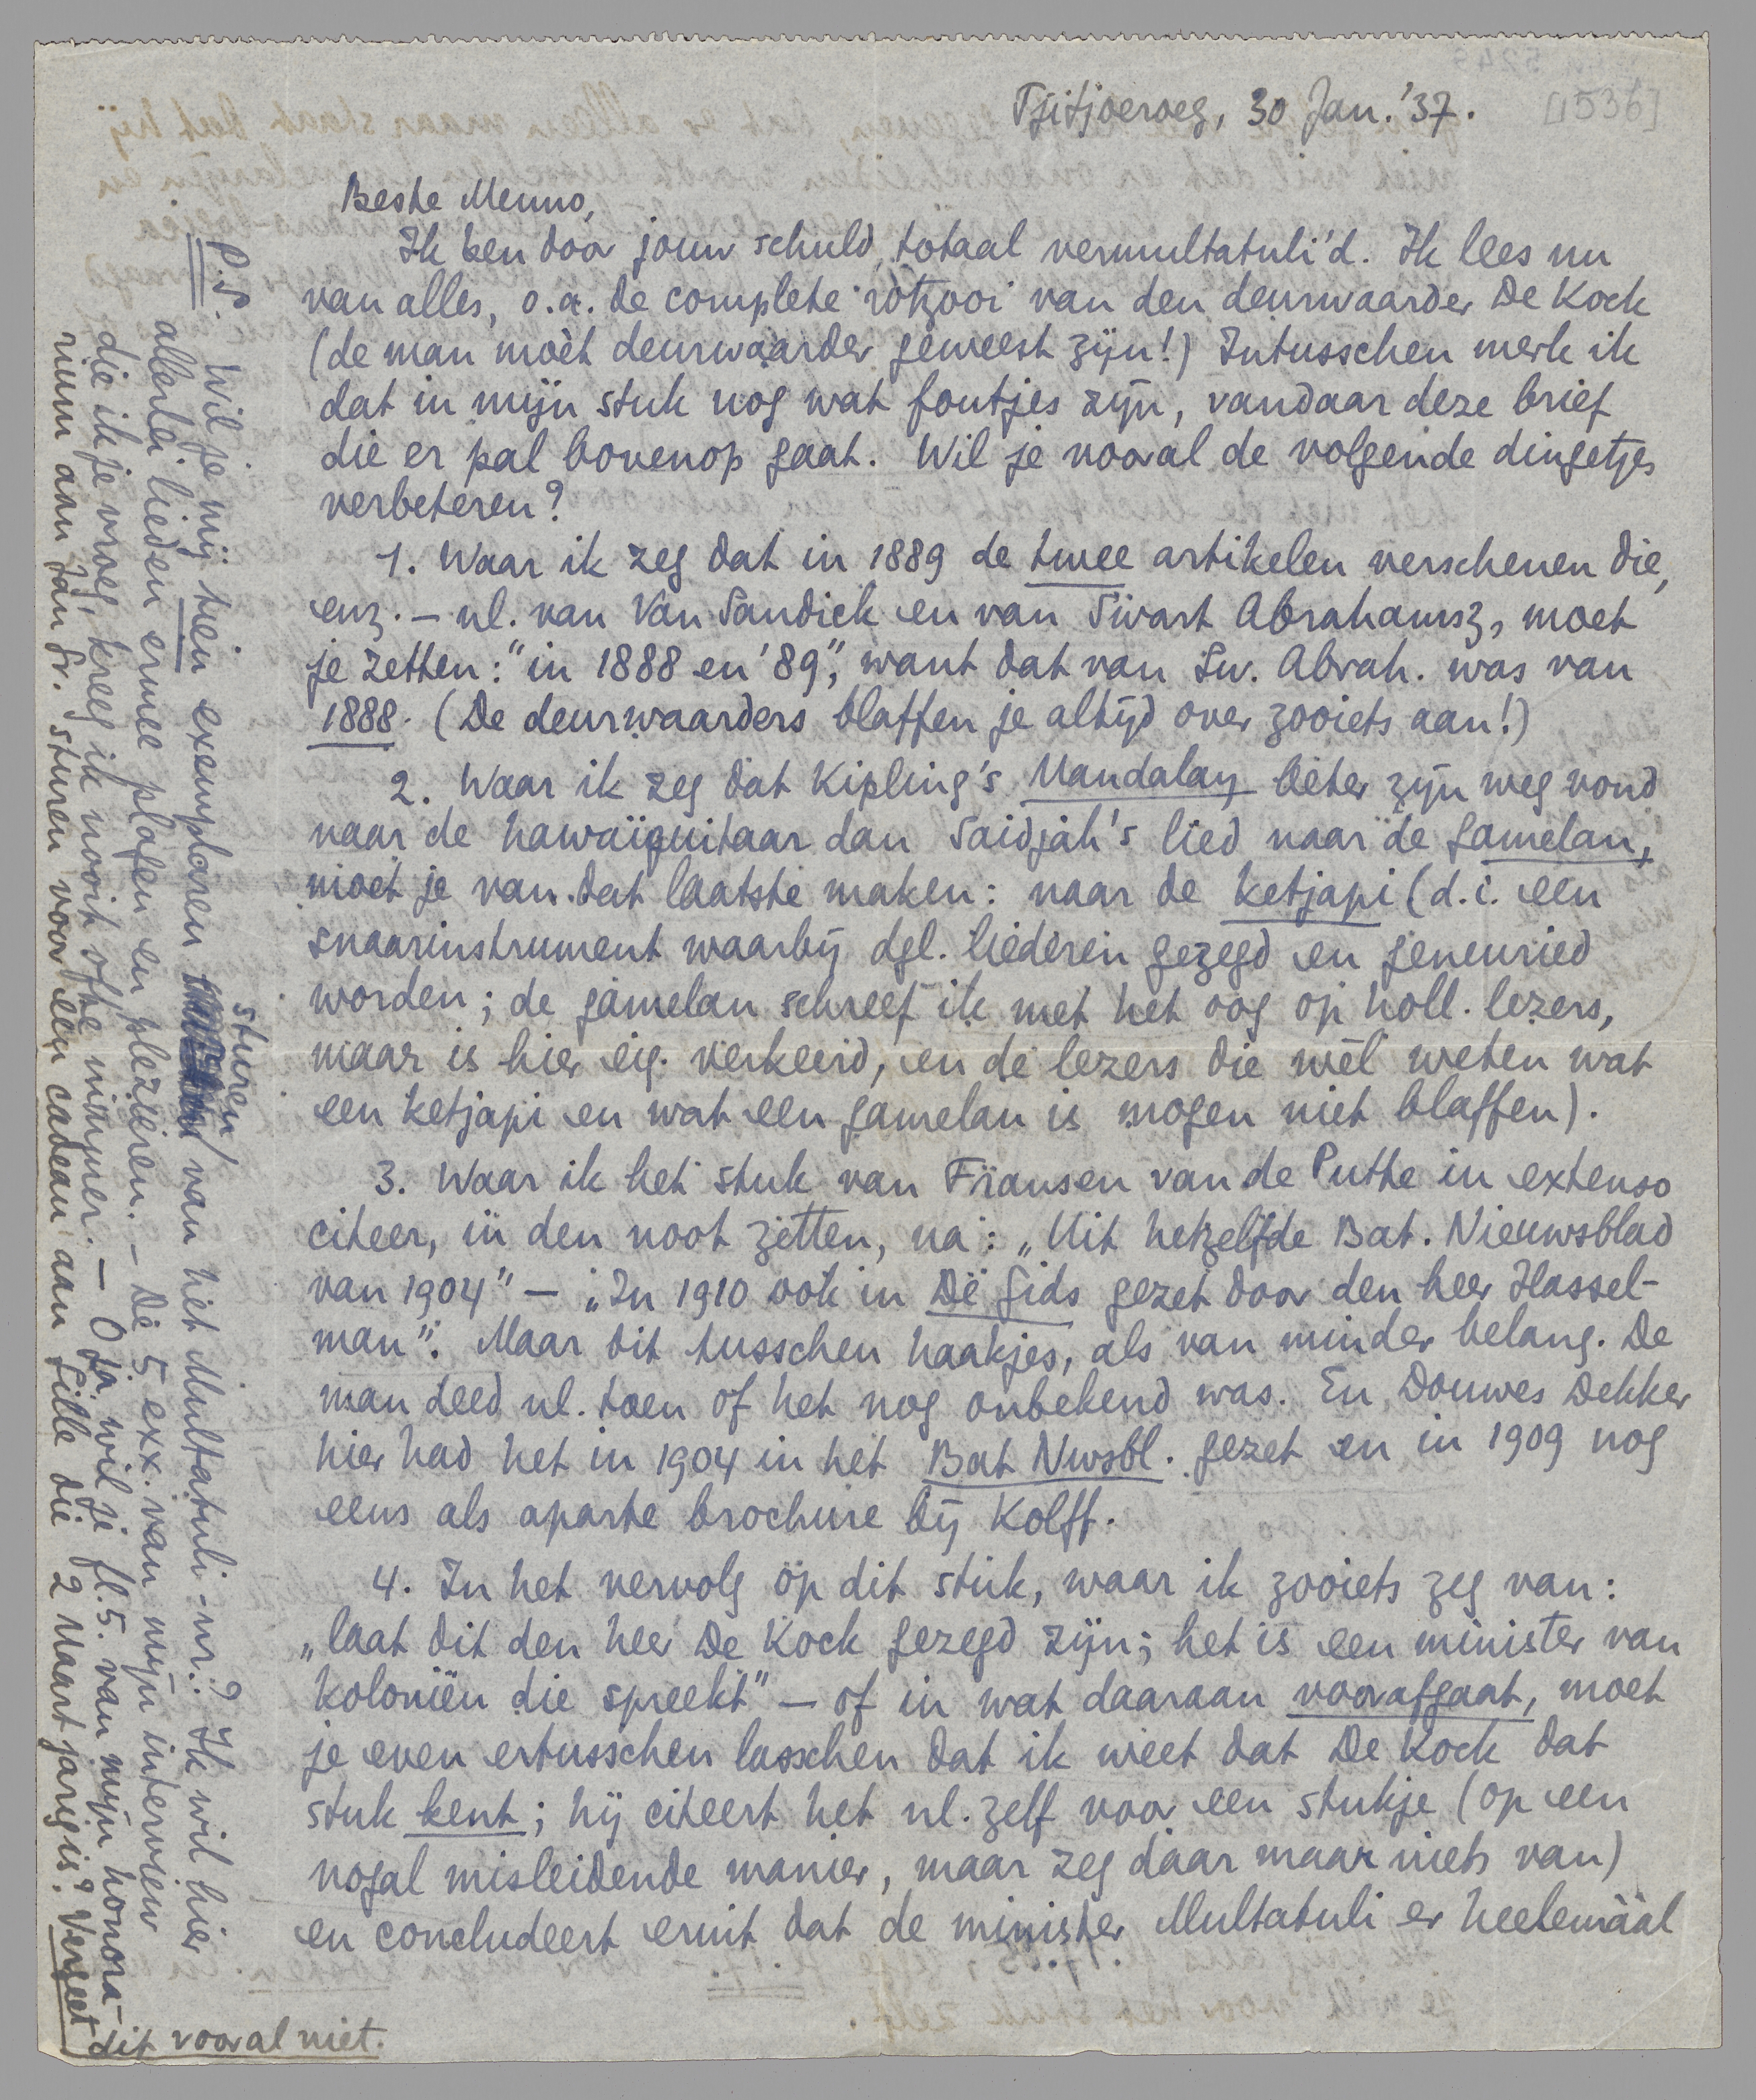 Tjitjoeroeg, 30 Jan. '37.
[1536]
Beste Menno,
Ik ben door jouw schuld, totaal vermultatuli'd. Ik lees nu
van alles, o.a. de complete rotzooi van den deurwaarder De Kock
(de man moèt deurwaarder geweest zijn!) Intusschen merk ik
dat in mijn stuk nog wat foutjes zijn, vandaar deze brief
die er pal bovenop gaat. Wil je vooral de volgende dingetjes
verbeteren?
1. Waar ik zeg dat in 1889 de twee artikelen verschenen die,
enz. – nl. van Van Sandick en van Swart Abrahamsz, moet
je zetten: "in 1888 en '89", want dat van Sw. Abrah. was van
1888. (De deurwaarders blaffen je altijd over zooiets aan!)
2. Waar ik zeg dat Kipling's Mandalay beter zijn weg vond
naar de hawaïguitaar dan Saidjah's lied naar de gamelan,
moet je van dat laatste maken: naar de ketjapi (d.i. een
snaarinstrument waarbij dgl. liederen gezegd en geneuried
worden; de gamelan schreef ik met het oog op holl. lezers,
maar is hier eig. verkeerd, en de lezers die wèl weten wat
een ketjapi en wat een gamelan is mogen niet blaffen).
3. Waar ik het stuk van Fransen van de Putte in extenso
citeer, in den noot zetten, na: „Uit hetzelfde Bat. Nieuwsblad
van 1904" – „In 1910 ook in De Gids gezet door den heer Hassel-
man". Maar dit tusschen haakjes, als van minder belang. De
man deed nl. toen of het nog onbekend was. En Douwes Dekker
hier had het in 1904 in het Bat Nwsbl. gezet en in 1909 nog
eens als aparte brochure bij Kolff.
4. In het vervolg op dit stuk, waar ik zooiets zeg van:
„laat dit den heer De Kock gezegd zijn; het is een minister van
koloniën die spreekt" – of in wat daaraan voorafgaat, moet
je even ertusschen lasschen dat ik weet dat De Kock dat
stuk kent; hij citeert het nl. zelf voor een stukje (op een
nogal misleidende manier, maar zeg daar maar niets van)
en concludeert eruit dat de minister Multatuli er heelemáál
P.S. Wil je mij tien exemplaren sturen van het Multatuli-nr.? Ik wil hier
allerlei lieden ermee plagen en plezieren. – De 5 exx. van mijn interview
die ik je vroeg, kreeg ik nooit ofte nimmer. – O ja, wil je fl. 5. van mijn honora-
rium aan Jan Gr. sturen voor een cadeau aan Gille die 2 Maart jarig is? Vergeet
dit vooral niet.